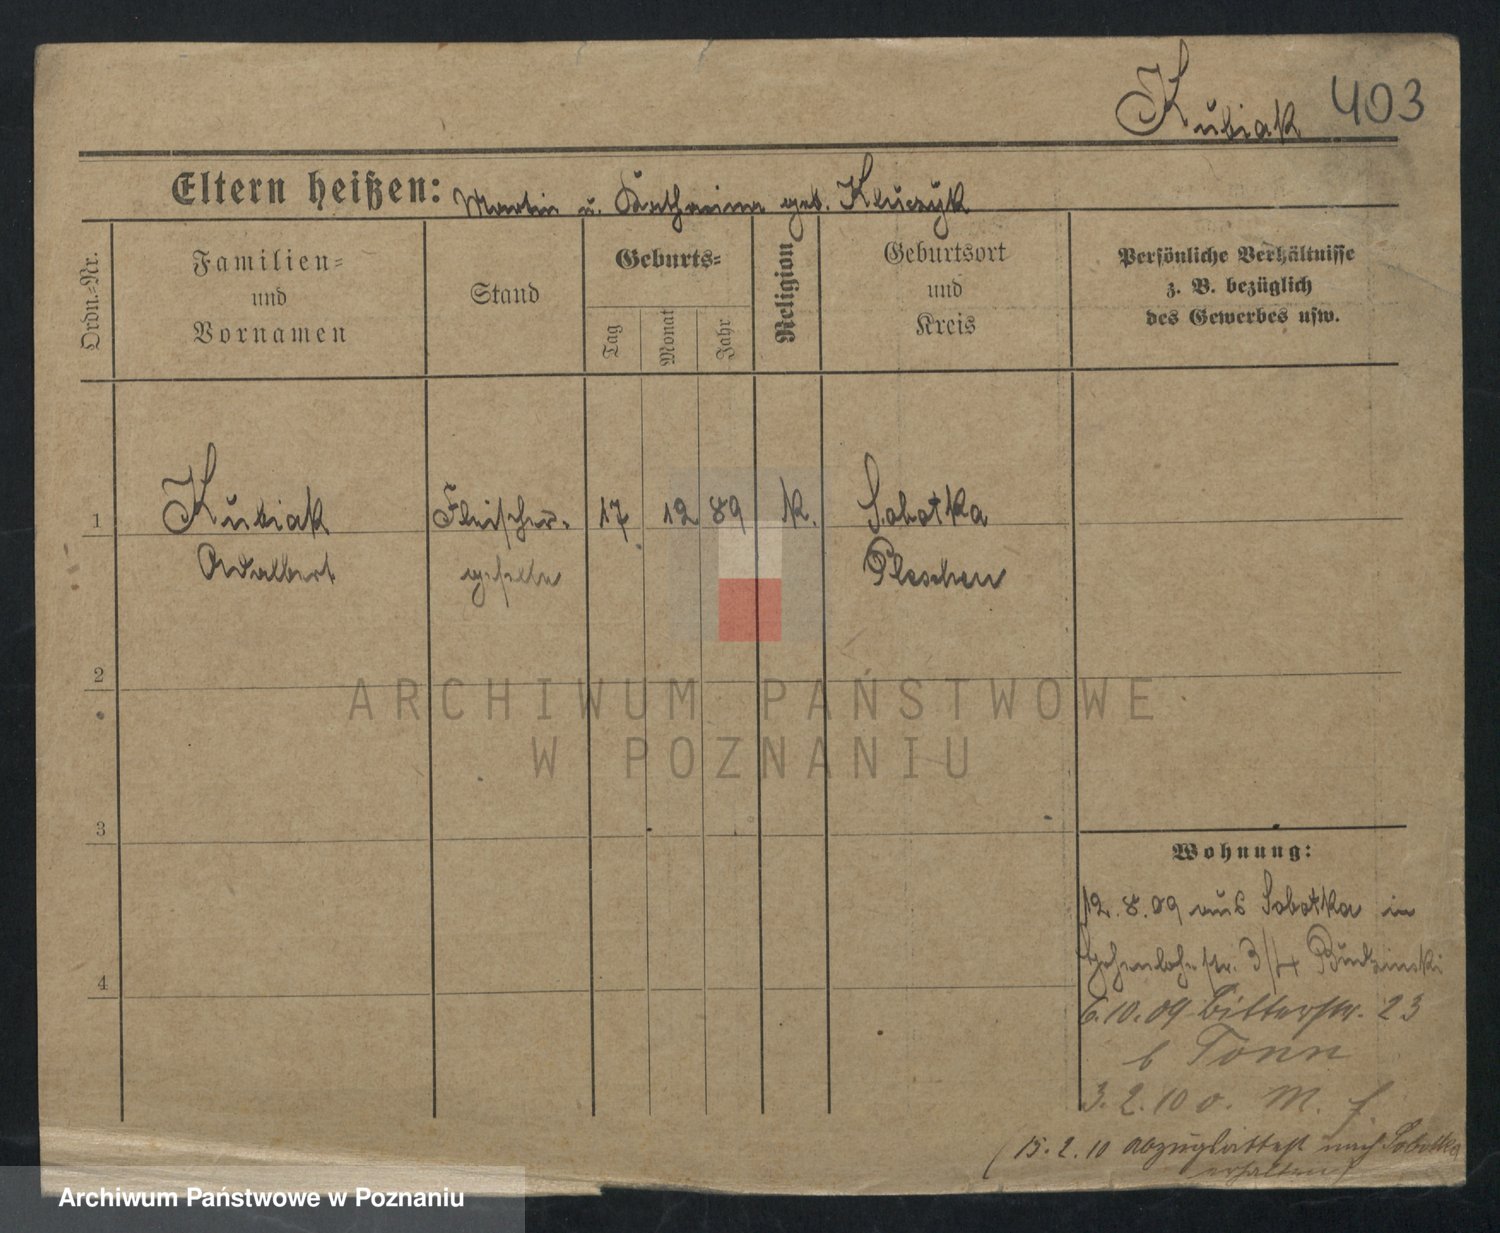 Kubiak 403
Eltern heißen: Martin u. Katharina geb. Kluczyk
Ordn.-Nr.
Familien-
und
Vornamen
Stand
Geburts-
Tag
Monat
Jahr
Religion
Geburtsort
und
Kreis
Persönliche Verhältnisse
z. B. bezüglich
des Gewerbes usw.
1 Kubiak Fleischer- 17 12 89 K. Sobotka
Adalbert geselle Pleschen
2
ARCHIWUM PAŃSTWOWE
W POZNANIU
3
Wohnung:
12.8.09 aus Sobotka in
Hohenlohestr. 3/4 Budzinski
4
6.10.09 Bitterstr. 23
b Tonn
3.2.10 o. M. f.
(15.2.10 Abzugsattest nach Sobotka
erhalten)
Archiwum Państwowe w Poznaniu